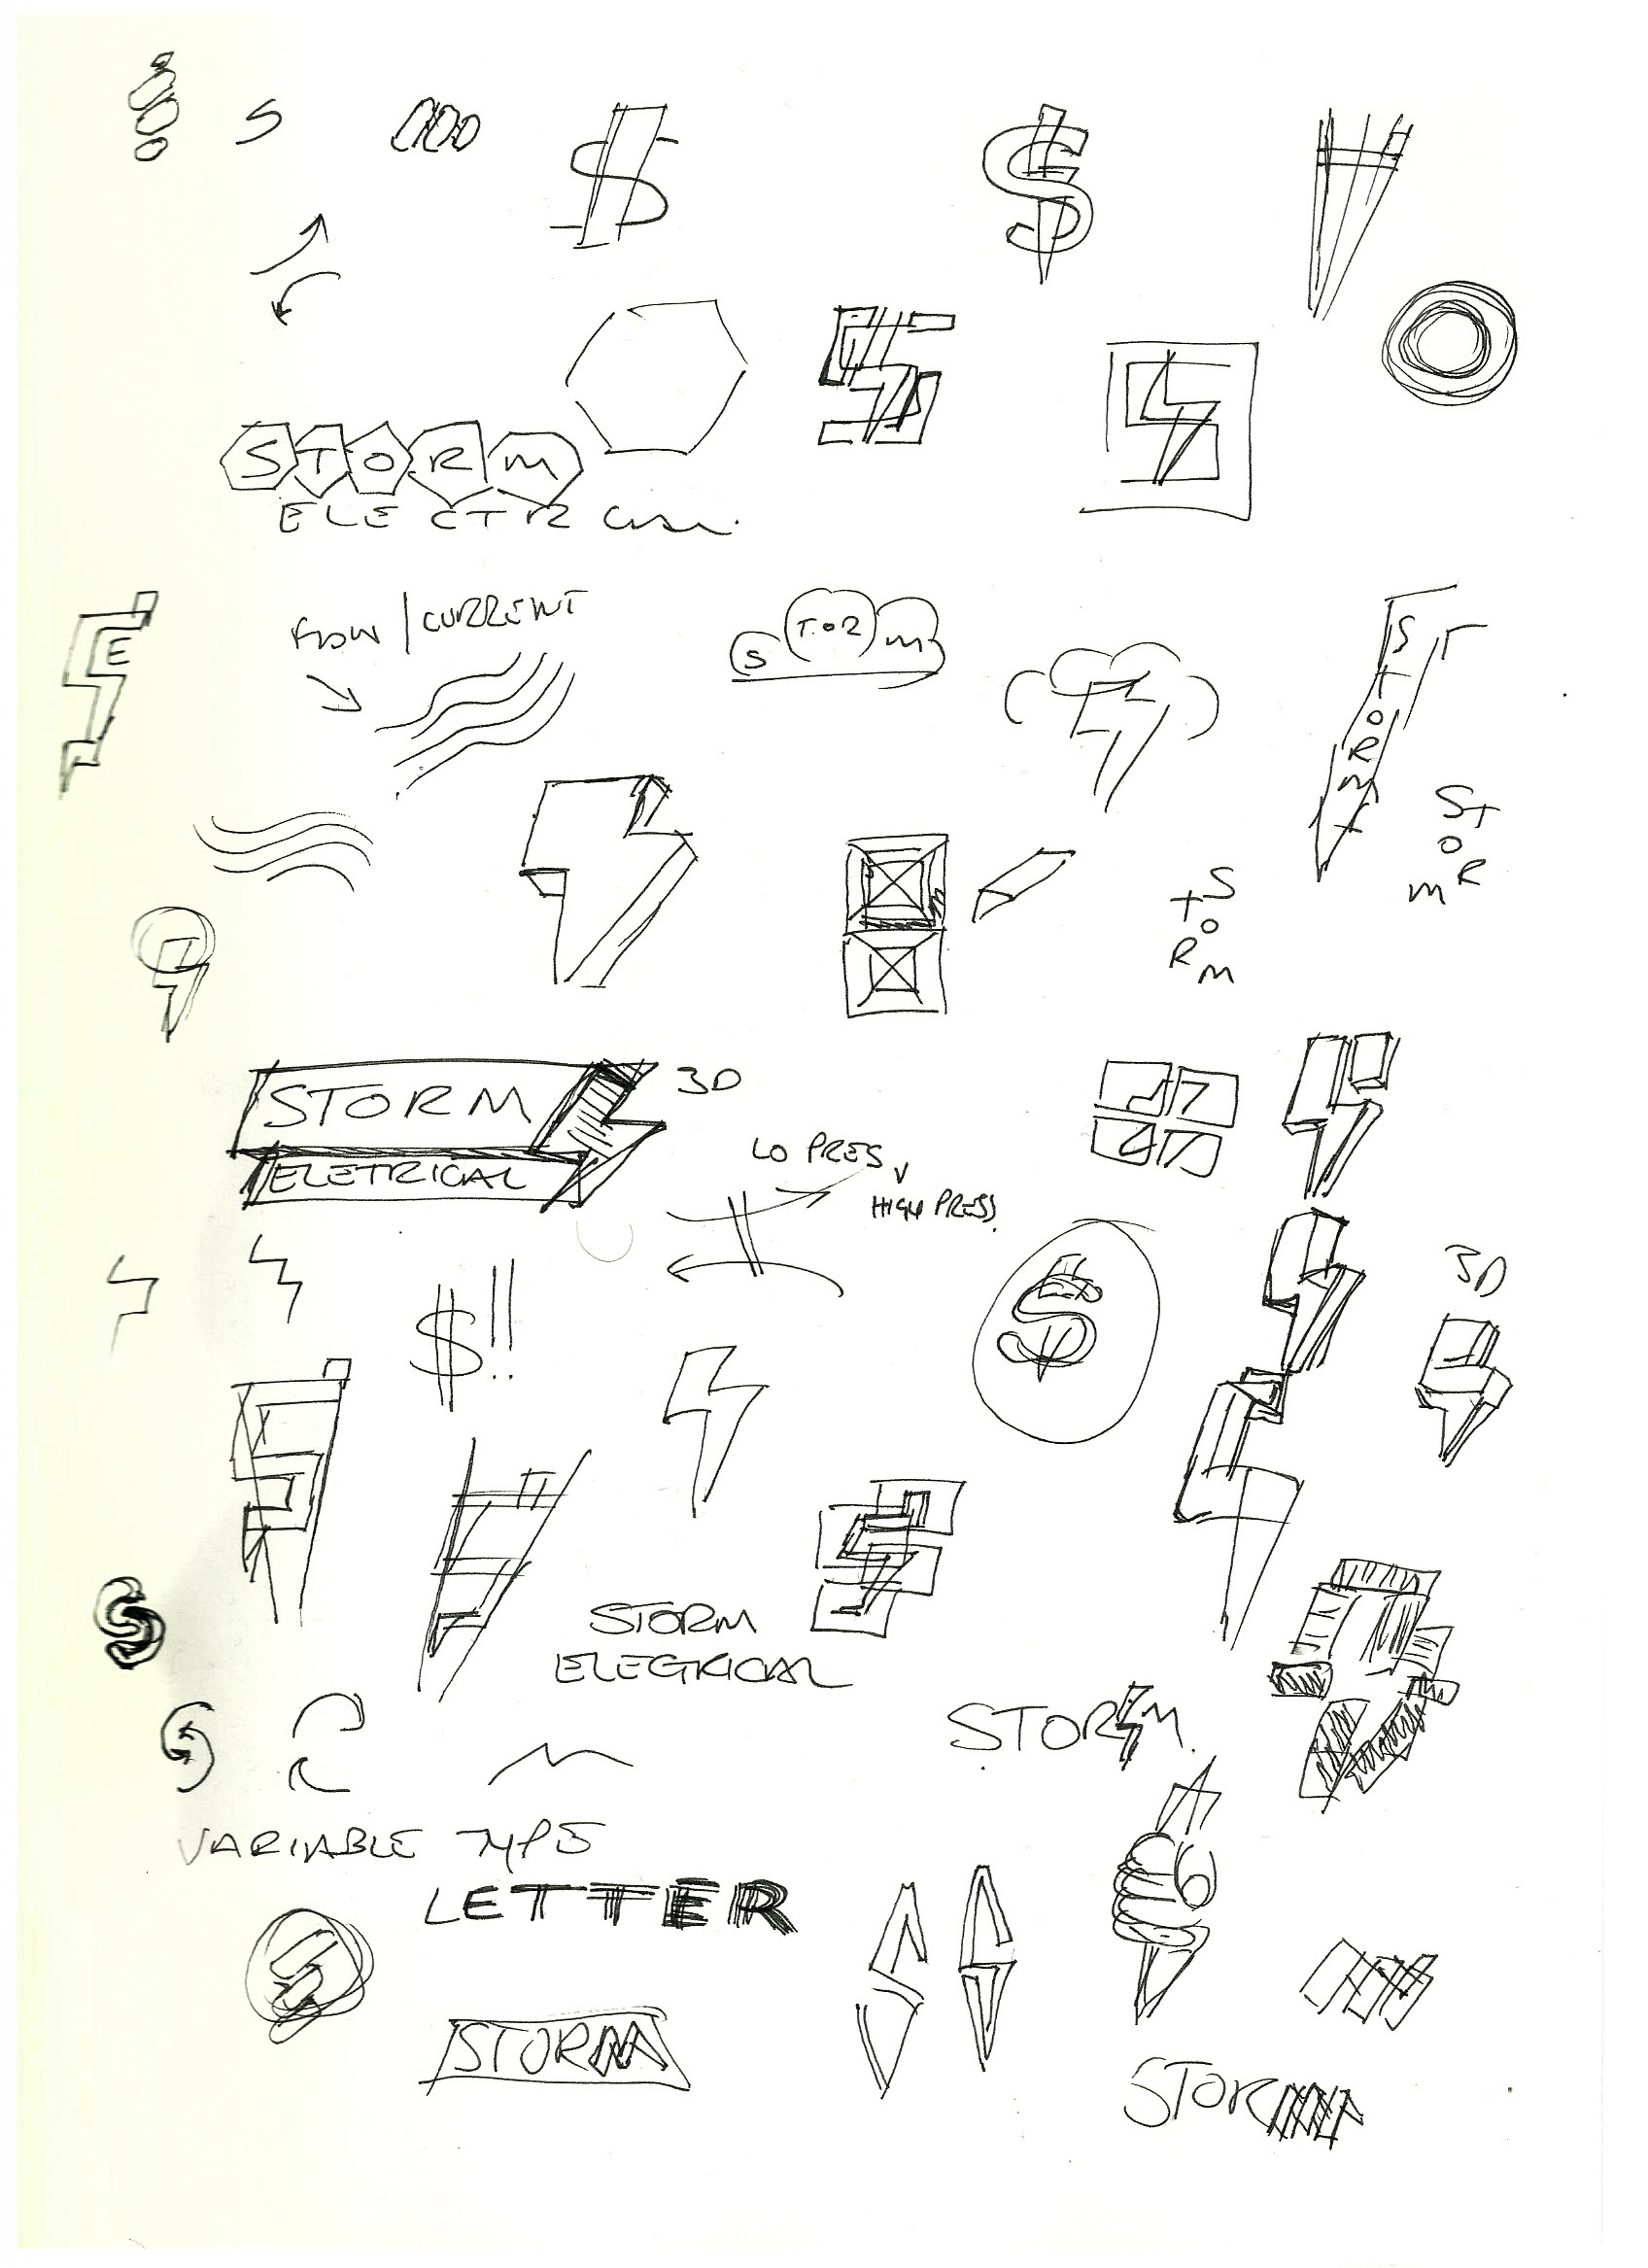 S
$
$
STORM
ELECTR
E
FLOW / CURRENT
STORM
STORM
T
STORM
STORM
STORM
3D
ELETRICAL
LO PRES
V
HIGH PRESS.
$!!
$
3D
STORM
ELECTRICAL
S
STORM
VARIABLE TYPE
LETTER
STORM
STORM